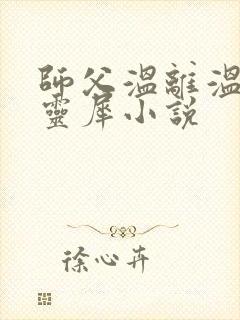 師父溫離溫
靈犀小說
徐心卉